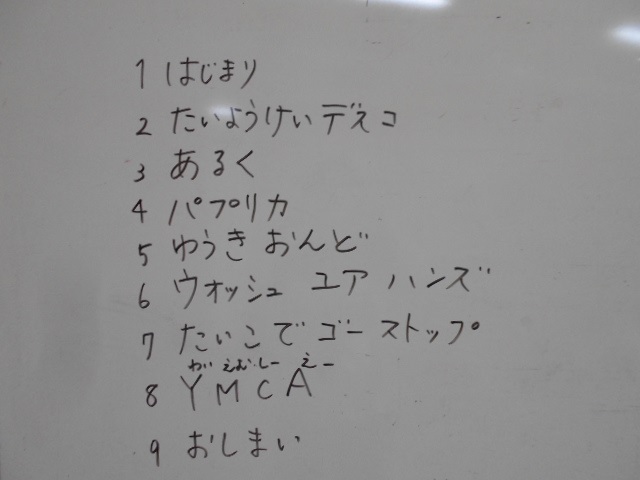 1 はじまり
2 たいようけいデスコ
3 あるく
4 パプリカ
5 ゆうき おんど
6 ウォッシュ ユア ハンズ
7 たいこで ゴー ストップ
わい えむ しー えー
8 YMCA
9 おしまい